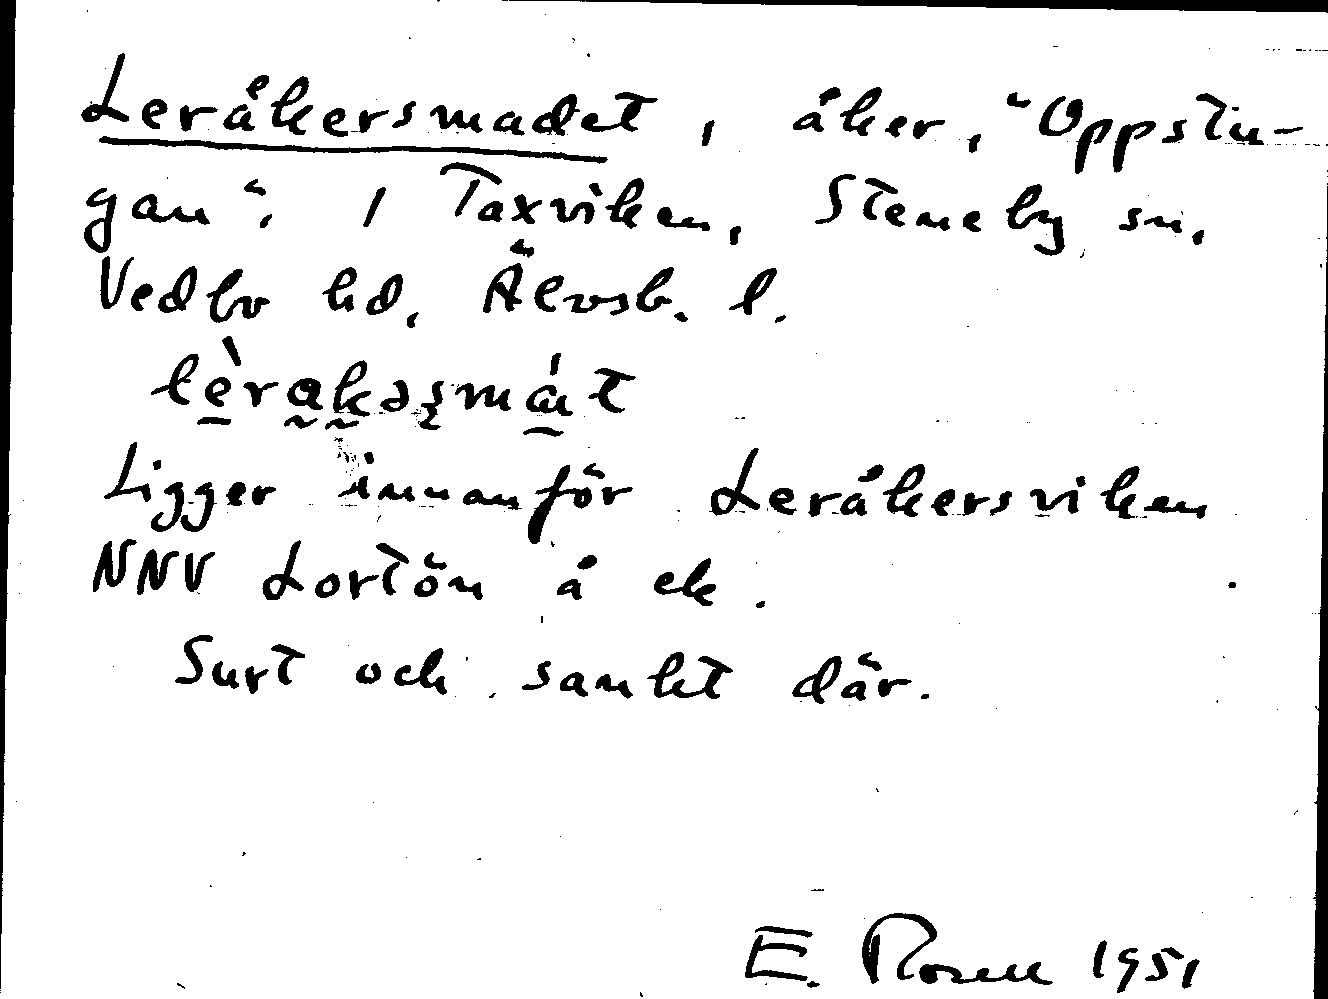 Leråkersmadet, åker, "Oppstu-
gan". 1 Taxviken, Steneby sn,
Vedbo hd, Älvsb. l.
lèrakəsmát
Ligger innanför Leråkersviken
NNV Lortön å ek.
Surt och sankt där.
E. Rosell 1951